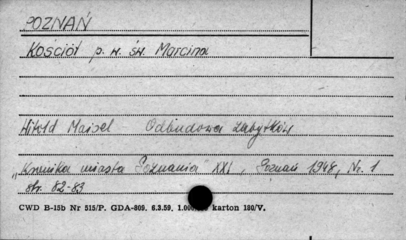 POZNAŃ
Kościół p. w. św. Marcina
Witold Maisel Odbudowa zabytków
"Kronika miasta Poznania" XXI, Poznań 1948, Nr. 1
str. 82-83
CWD B-15b Nr 515/P. GDA-809. 6.3.59. 1.000 karton 180/V.